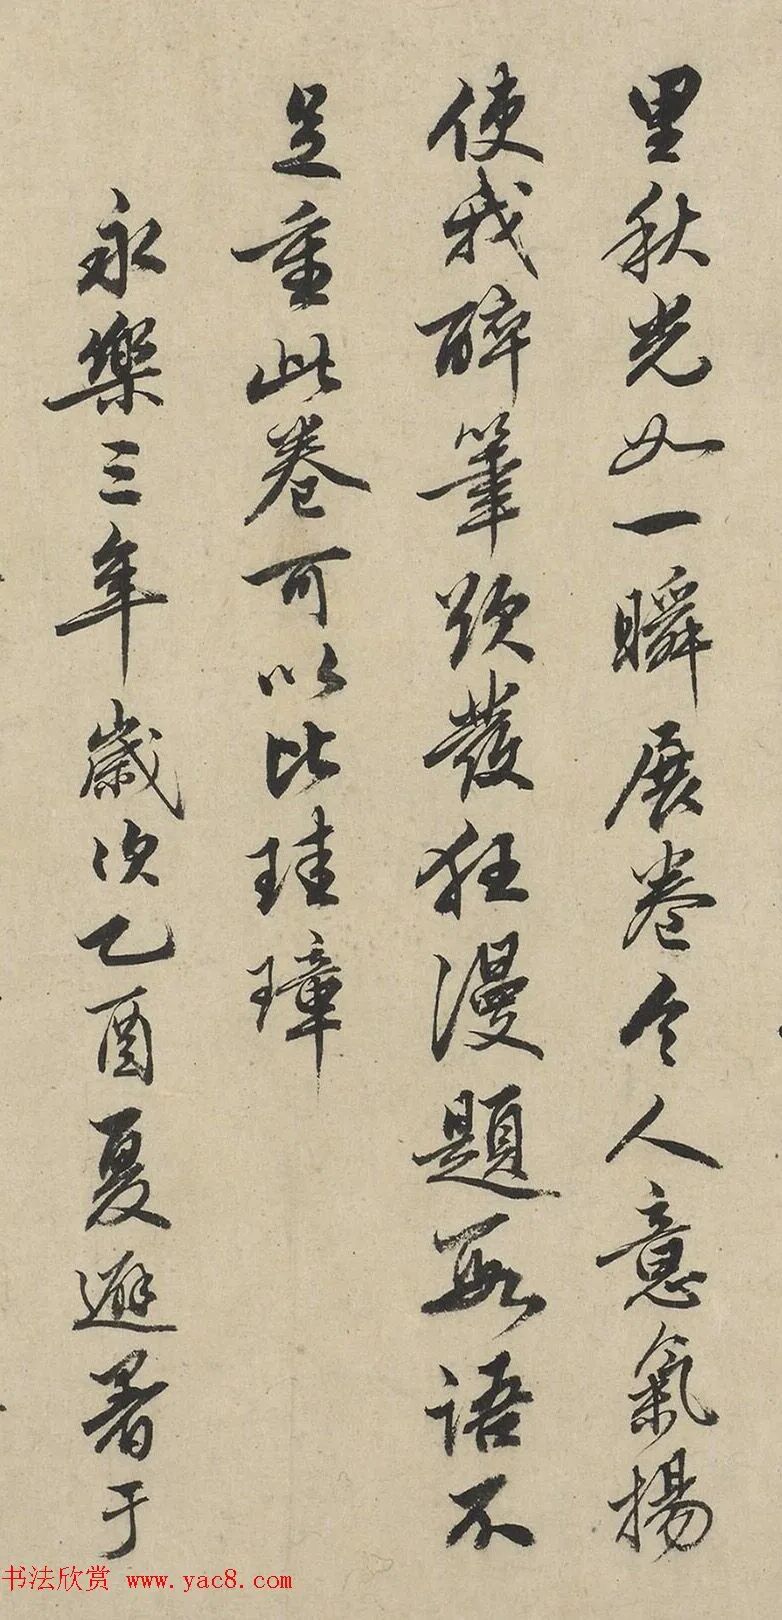 里秋光如一瞬展卷令人意氣揚
使我醉筆欲發狂漫題數語不
足重此卷可以比珪璋
永樂三年歲次乙酉夏避暑于
书法欣赏 www.yac8.com